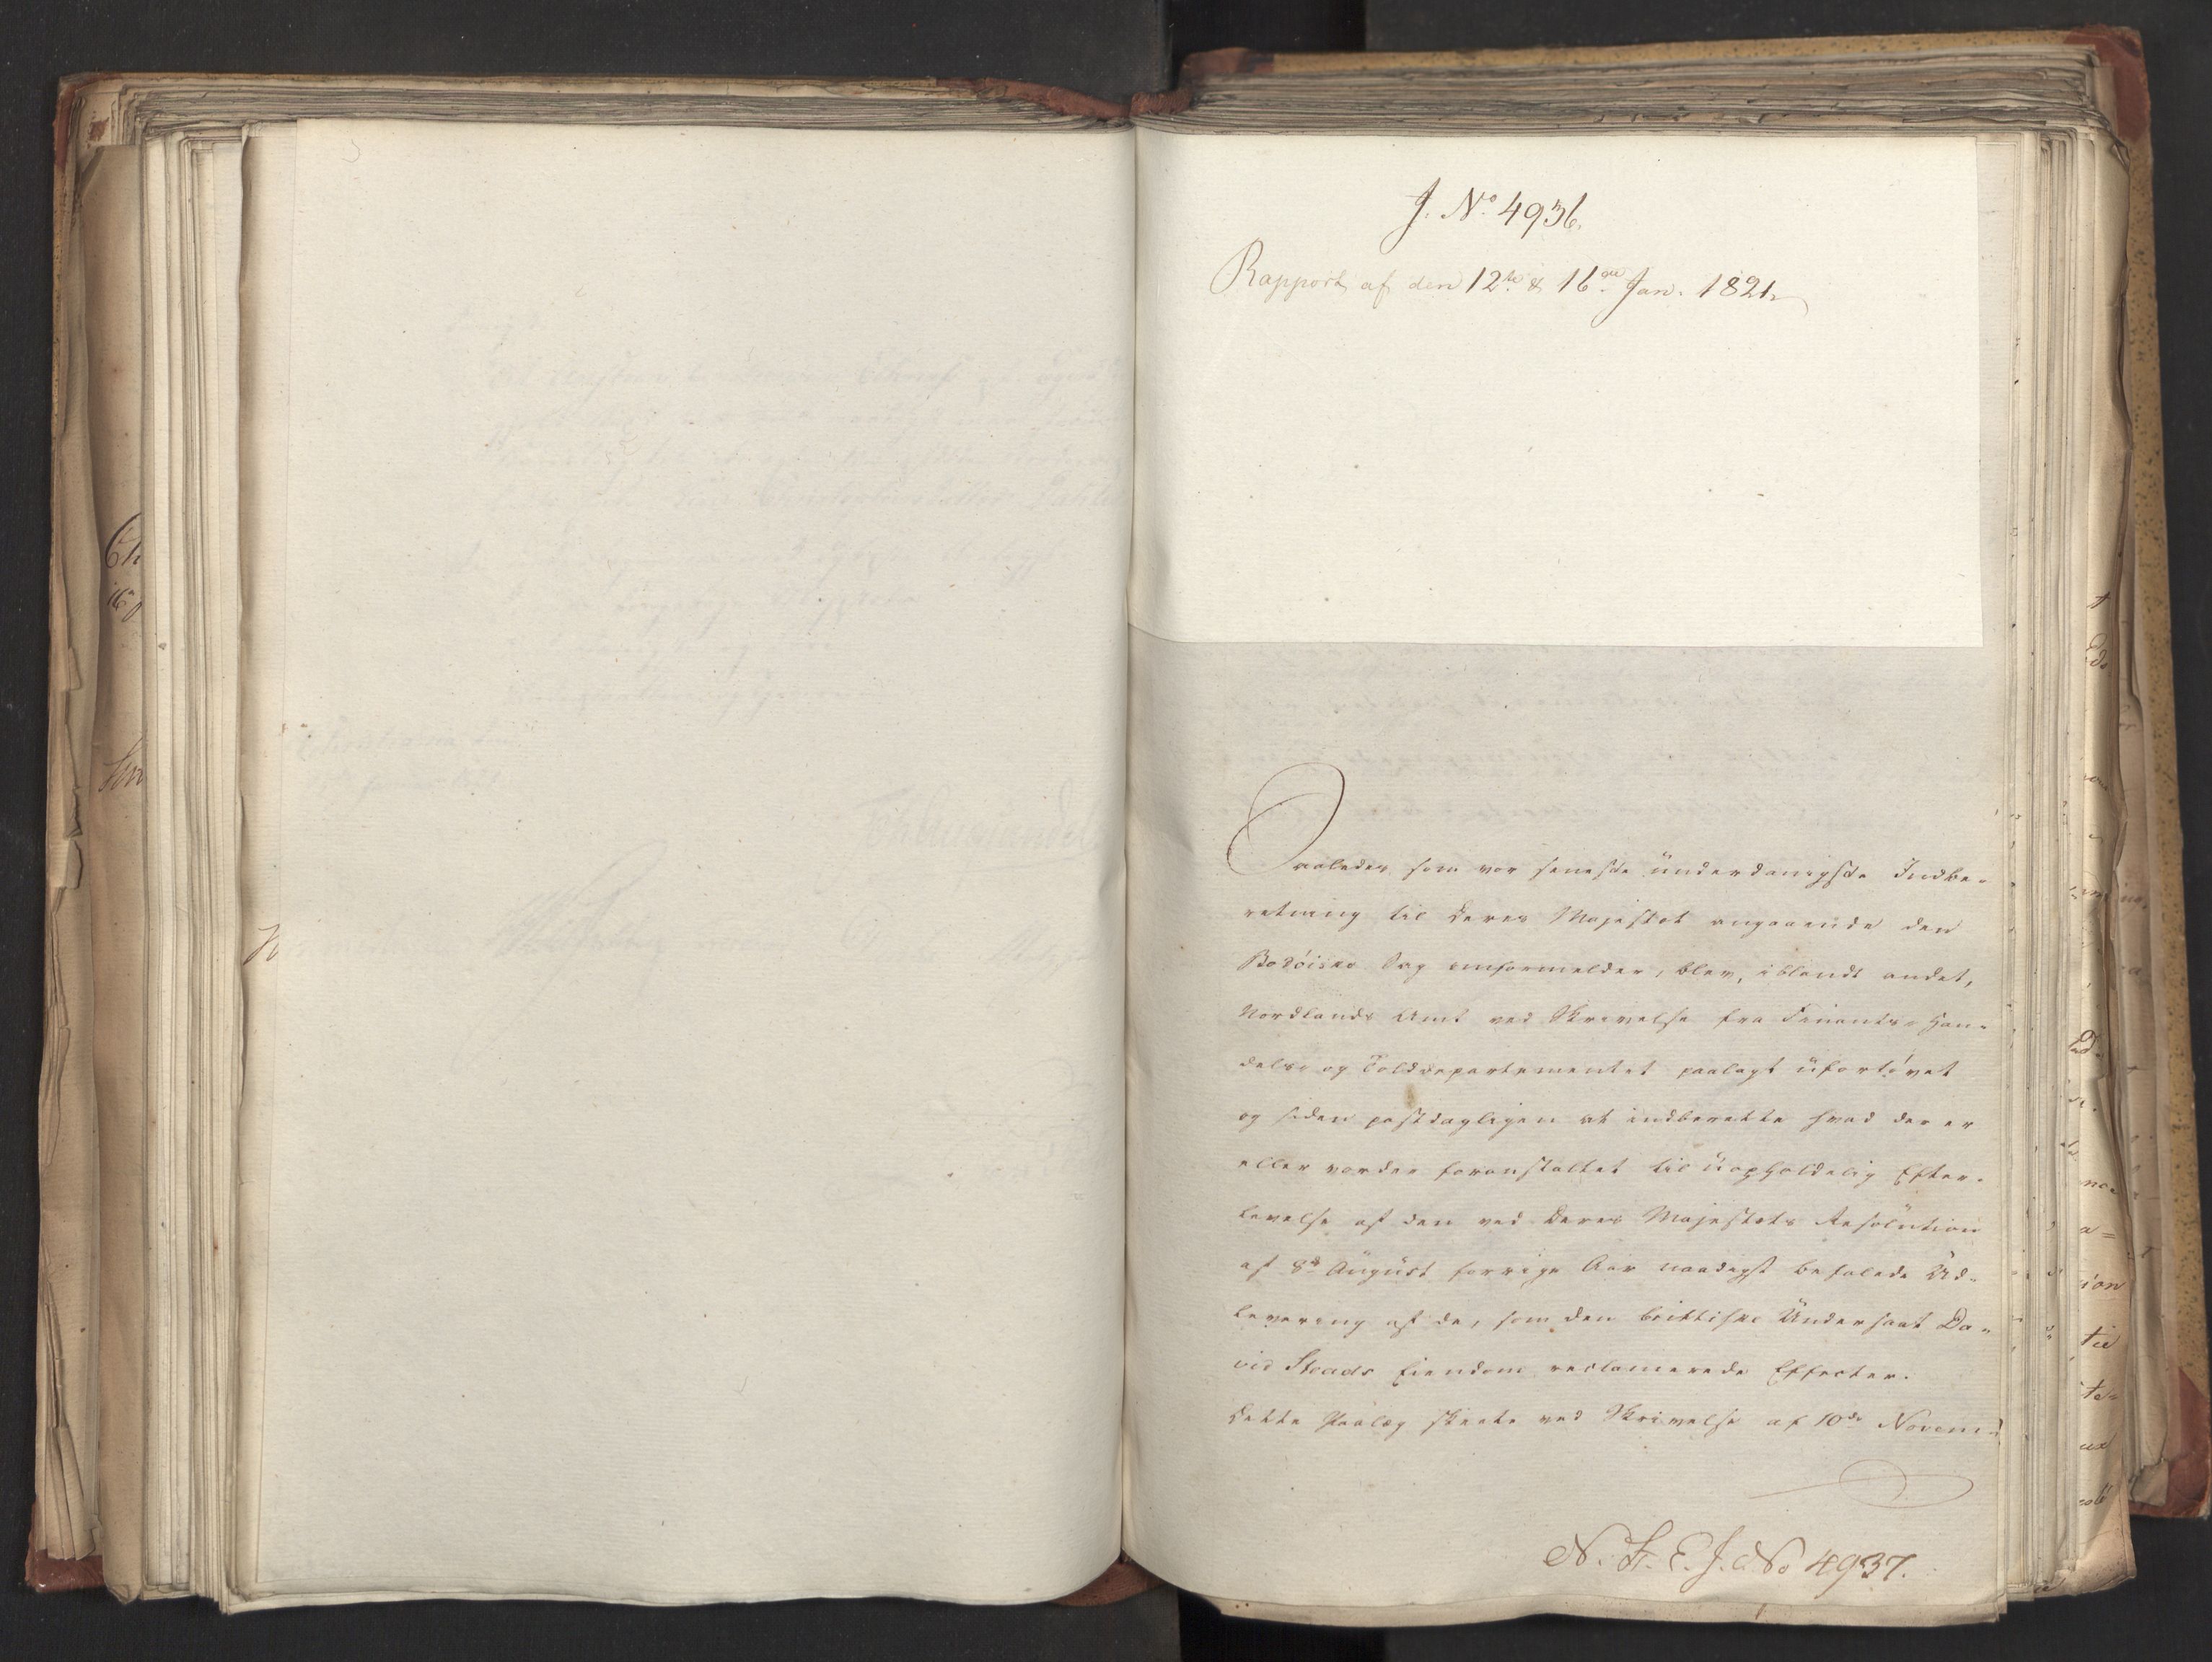 J. No 4936.
Rapport af den 12te & 16de Jan. 1821
Saaledes som vor seneste ünderdanigste Indbe-
retning til Deres Majestet angaaende den
Bodöiske Sag omformelder, blev, iblandt andet,
Nordlands Amt ved Skrivelse fra Finants- Han-
dels- og Tolddepartementet paalagt üfortövet
og siden postdagligen at indberette hvad der er
eller vorder foranstaltet til üopholdelig Efter-
levelse af den ved Deres Majestets Resolütion
af 8de Augüst forrige Aar naadigst befalede Ud-
levering af de, som den brittiske Undersaat Da-
vid Steads Eiendom reclamerede Effecter.
Dette Paalæg skeete ved Skrivelse af 10de Novem-
N. F. E. J. No 4937.